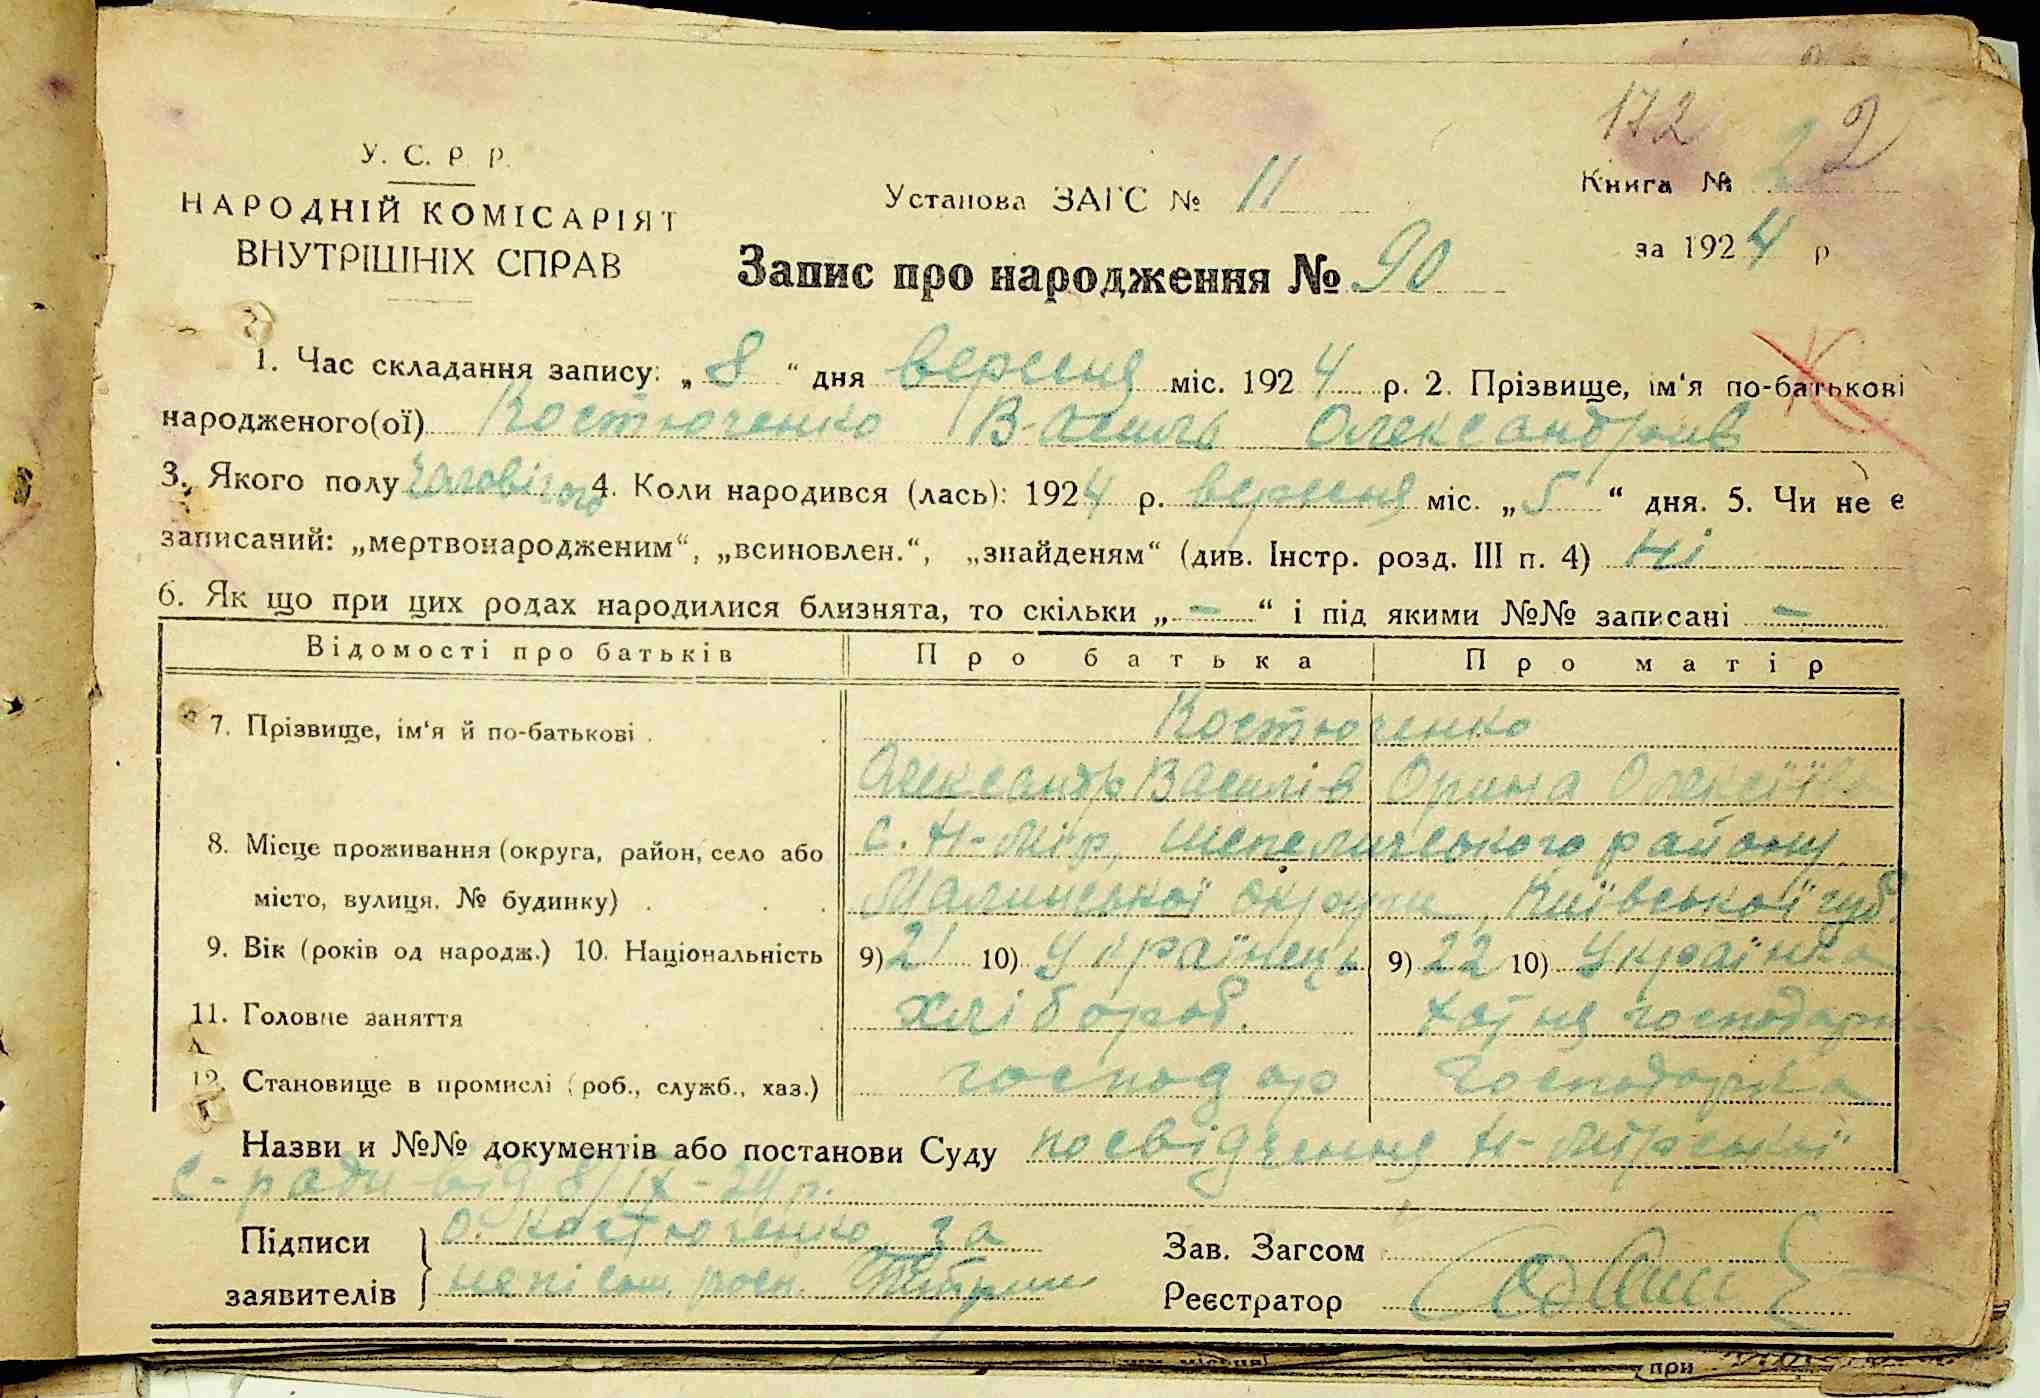 172
У. С. Р. Р.
НАРОДНІЙ КОМІСАРІЯТ
ВНУТРІШНІХ СПРАВ
Установа ЗАГС № 11
Книга № 2 2
за 1924 р
Запис про народження № 90
1. Час складання запису: „8“ дня вересня міс. 1924 р. 2. Прізвище, ім‘я по-батькові
народженого(ої) Костюченко Василь Олександрів
3. Якого полу чоловічого 4. Коли народився (лась): 1924 р. вересня міс. „5“ дня. 5. Чи не є
записаний: „мертвонародженим“, „всиновлен.“, „знайденям“ (див. Інстр. розд. III п. 4) Ні
6. Як що при цих родах народилися близнята, то скільки „–“ і під якими №№ записані –
Відомості про батьків Про батька Про матір
7. Прізвище, ім‘я й по-батькові . Костюченко
Олександр Василів Орина Олексіїва
8. Місце проживання (округа, район, село або с. Н-Мір, Шепелицького району
місто, вулиця, № будинку) . Малинської округи, Київської губ.
9. Вік (років од народж.) 10. Національність 9) 21 10) Українець 9) 22 10) Українка
11. Головне заняття хлібороб. хатня господарка
12. Становище в промислі (роб., служб., хаз.) господар господарка
Назви и №№ документів або постанови Суду посвідчення Н-Мірської
с-ради від 8/IX-24 р.
Підписи О. Костюченко, за
заявителів росп.
Зав. Загсом
Реєстратор
при